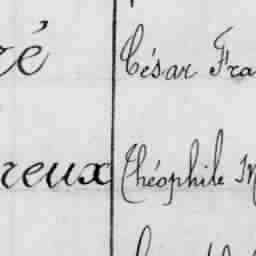 ré César Fra
reux Théophile M